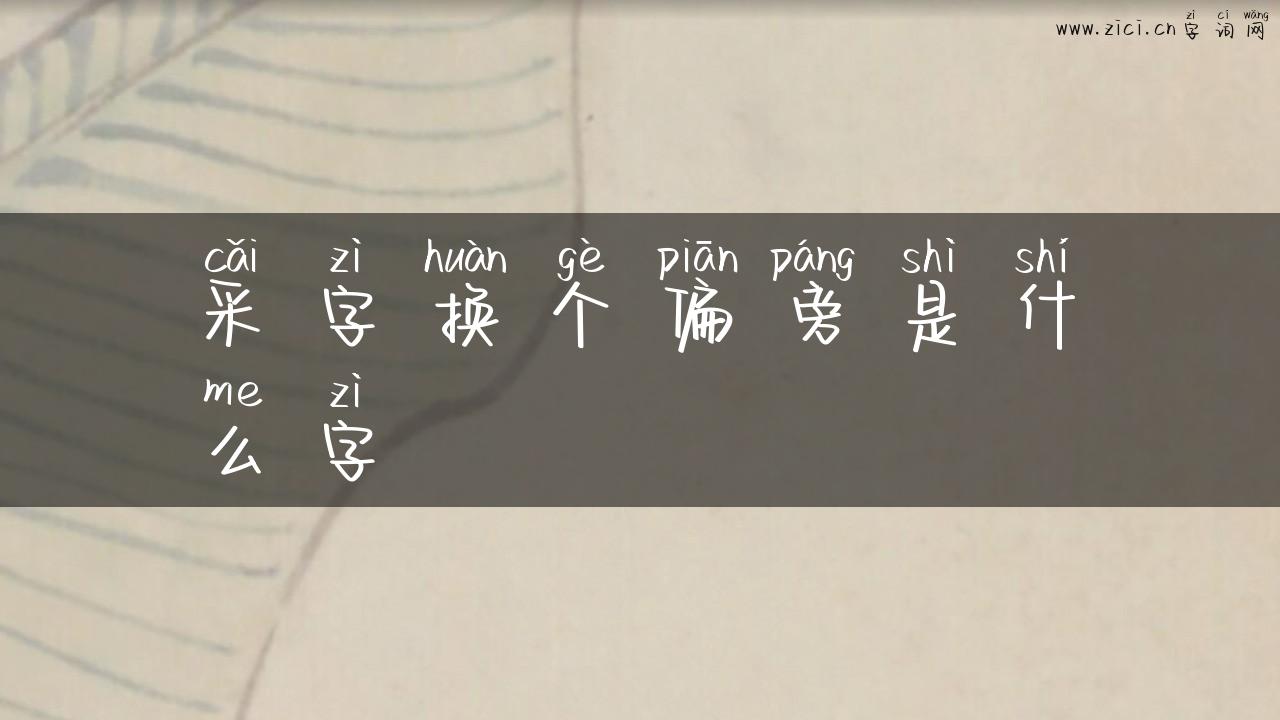 zì cí wǎng
www.zici.cn字词网
cǎi zì huàn gè piān páng shì shí
采字换个偏旁是什
me zì
么字